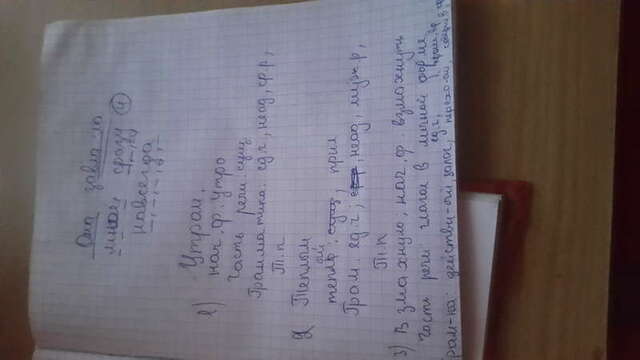 Она завла ла
мной, сразу 4
навсегда
Утром.
1) нач. ф. утро
Часть речи. сущ
Грамматика. ед.ч, неод, ср.р,
Т.п
2 Теплым
тепл ый. сущ, прил
Грам. ед.ч; неод, муж р,
Т.п
3) Взмахнуло; нач. ф. взмахнуть
Часть речи глагол в личной форме
ед.ч,
Грам-ка: действи-ый, залог,